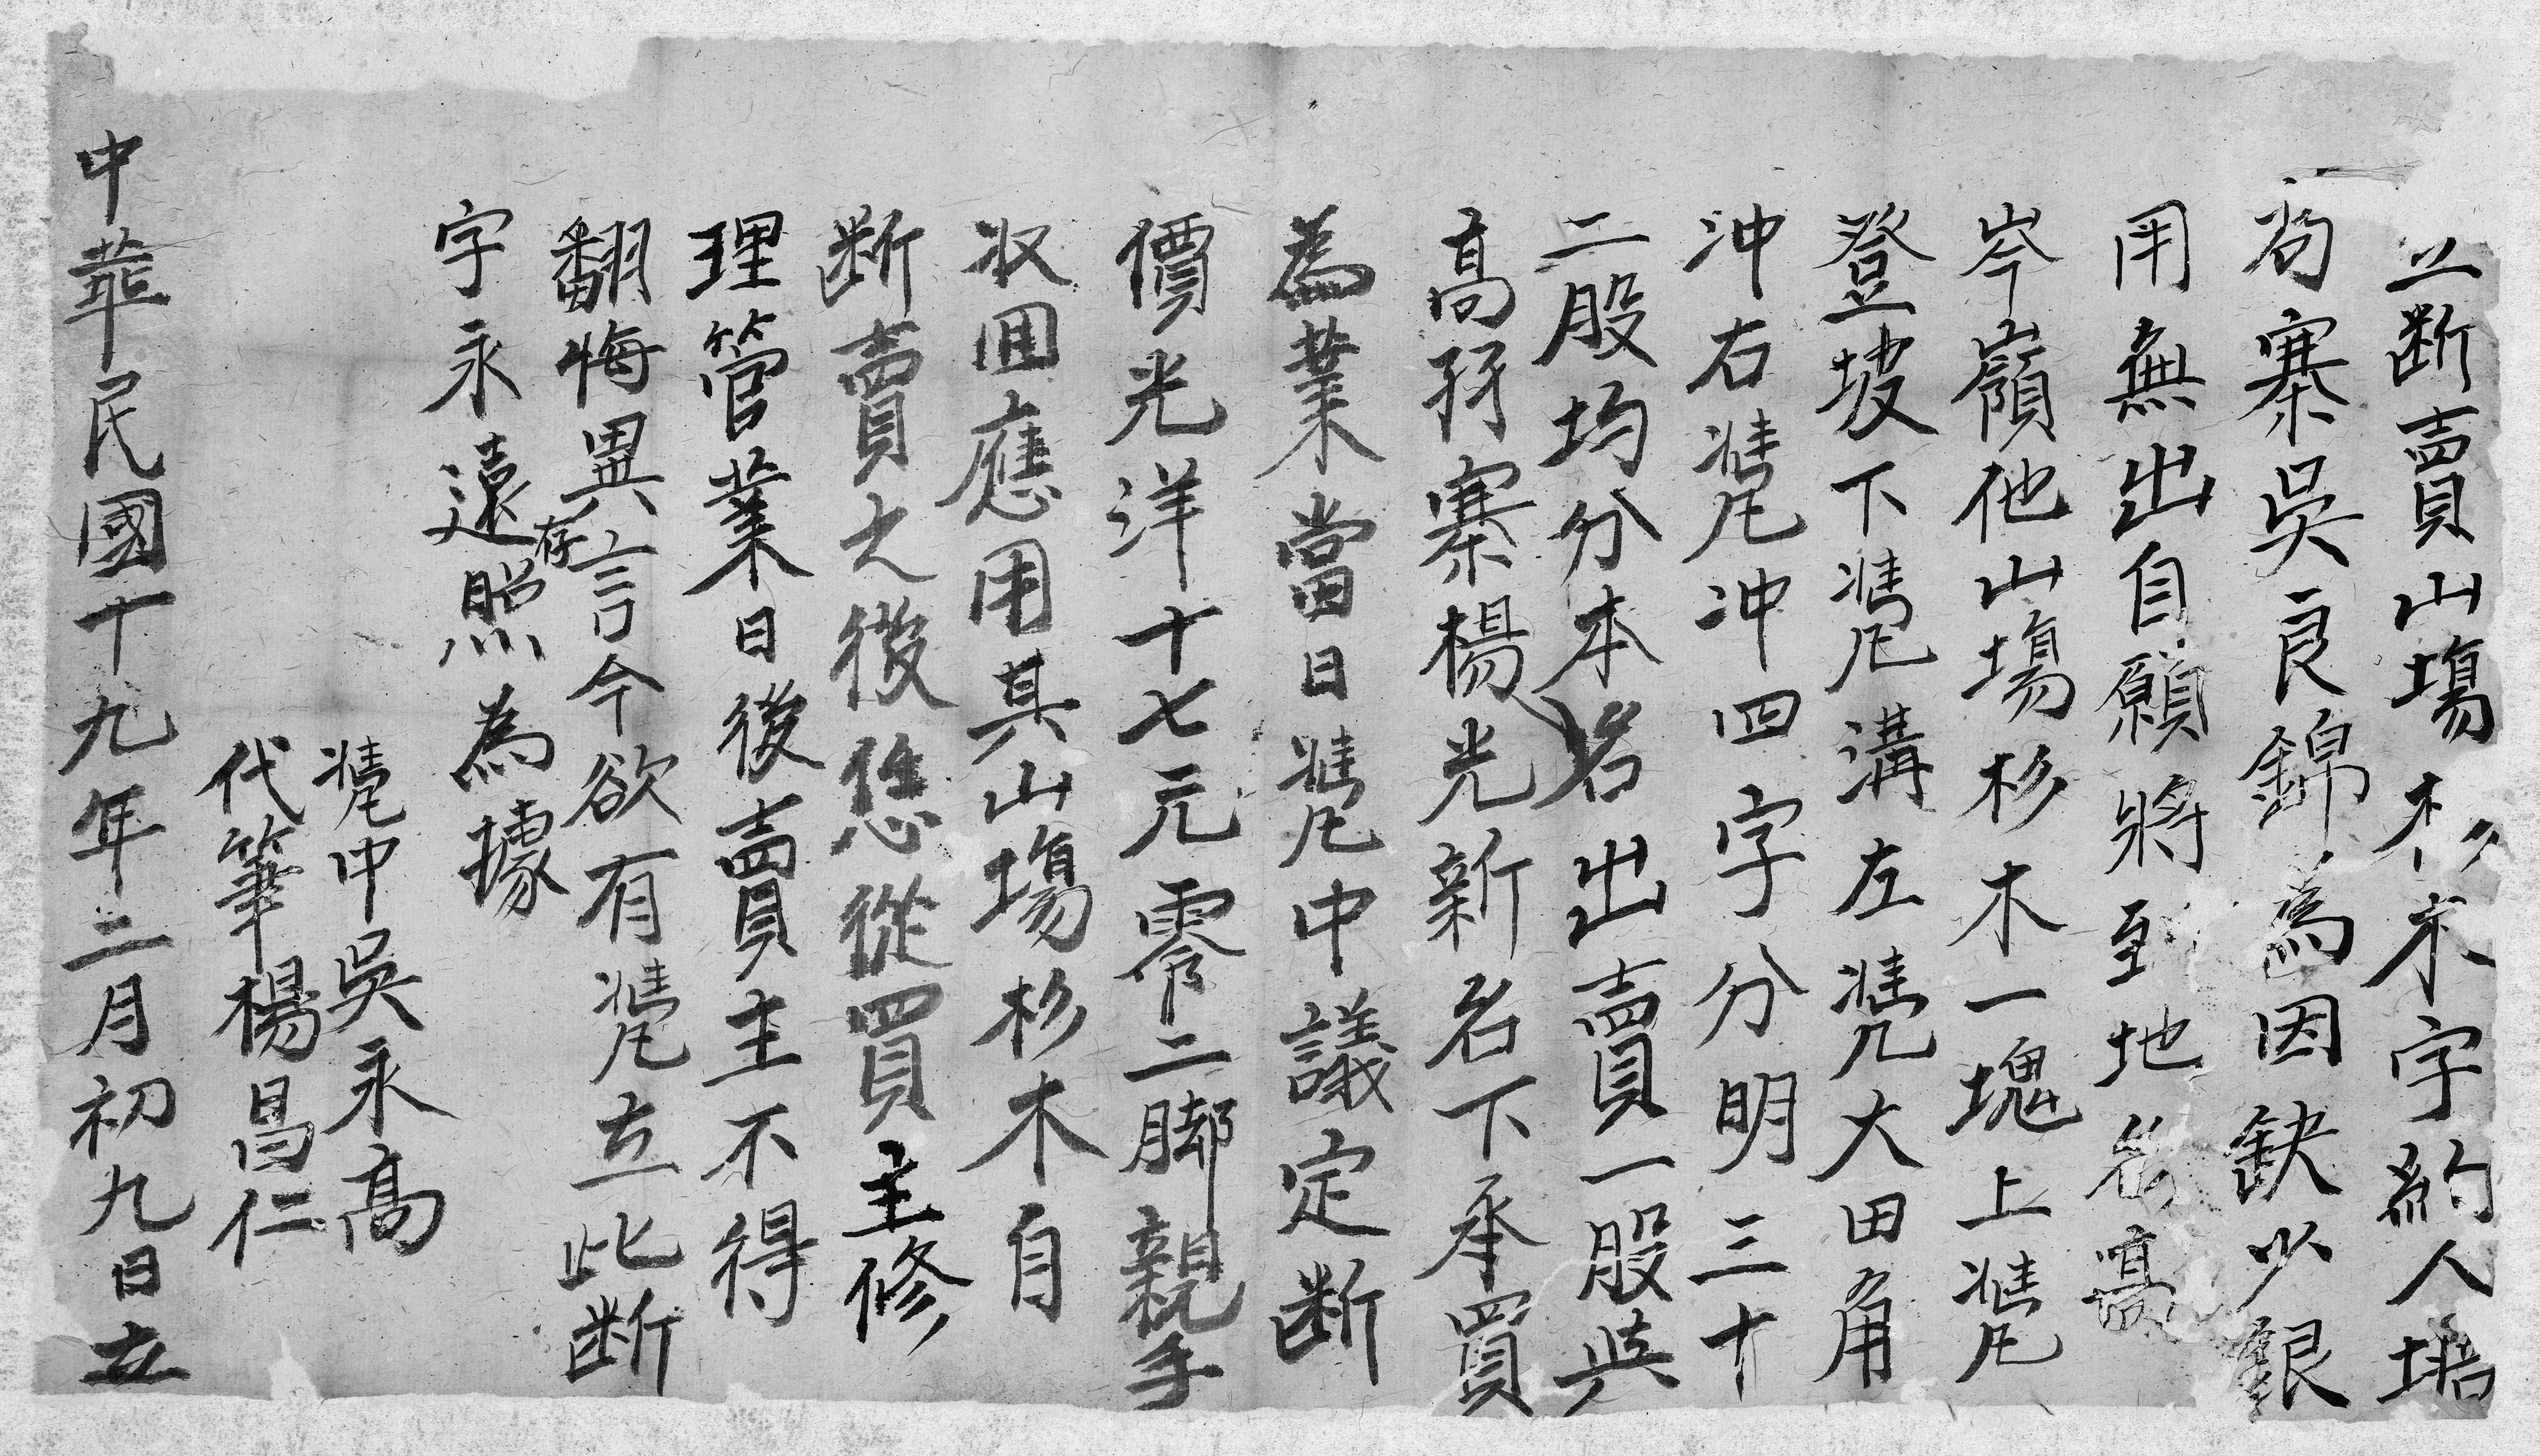 立断賣山塲杉木字約人培
芶寨吳良錦為因缺少銀
用無出自願將到地名高
岑嶺他山塲杉木一塊上凴
登坡下凴溝左凴大田角
冲右凴冲四字分明三十
二股均分本名出賣一股與
高孖寨楊光新名下承買
為業當日凴中議定断
價光洋十七元零二脚親手
收囬應用其山塲杉木自
断賣之後恁從買主修
理管業日後賣主不得
翻悔異言今欲有凴立此断
字永遠存照為據
凴中吳永高
代筆楊昌仁
中華民國十九年二月初九日立